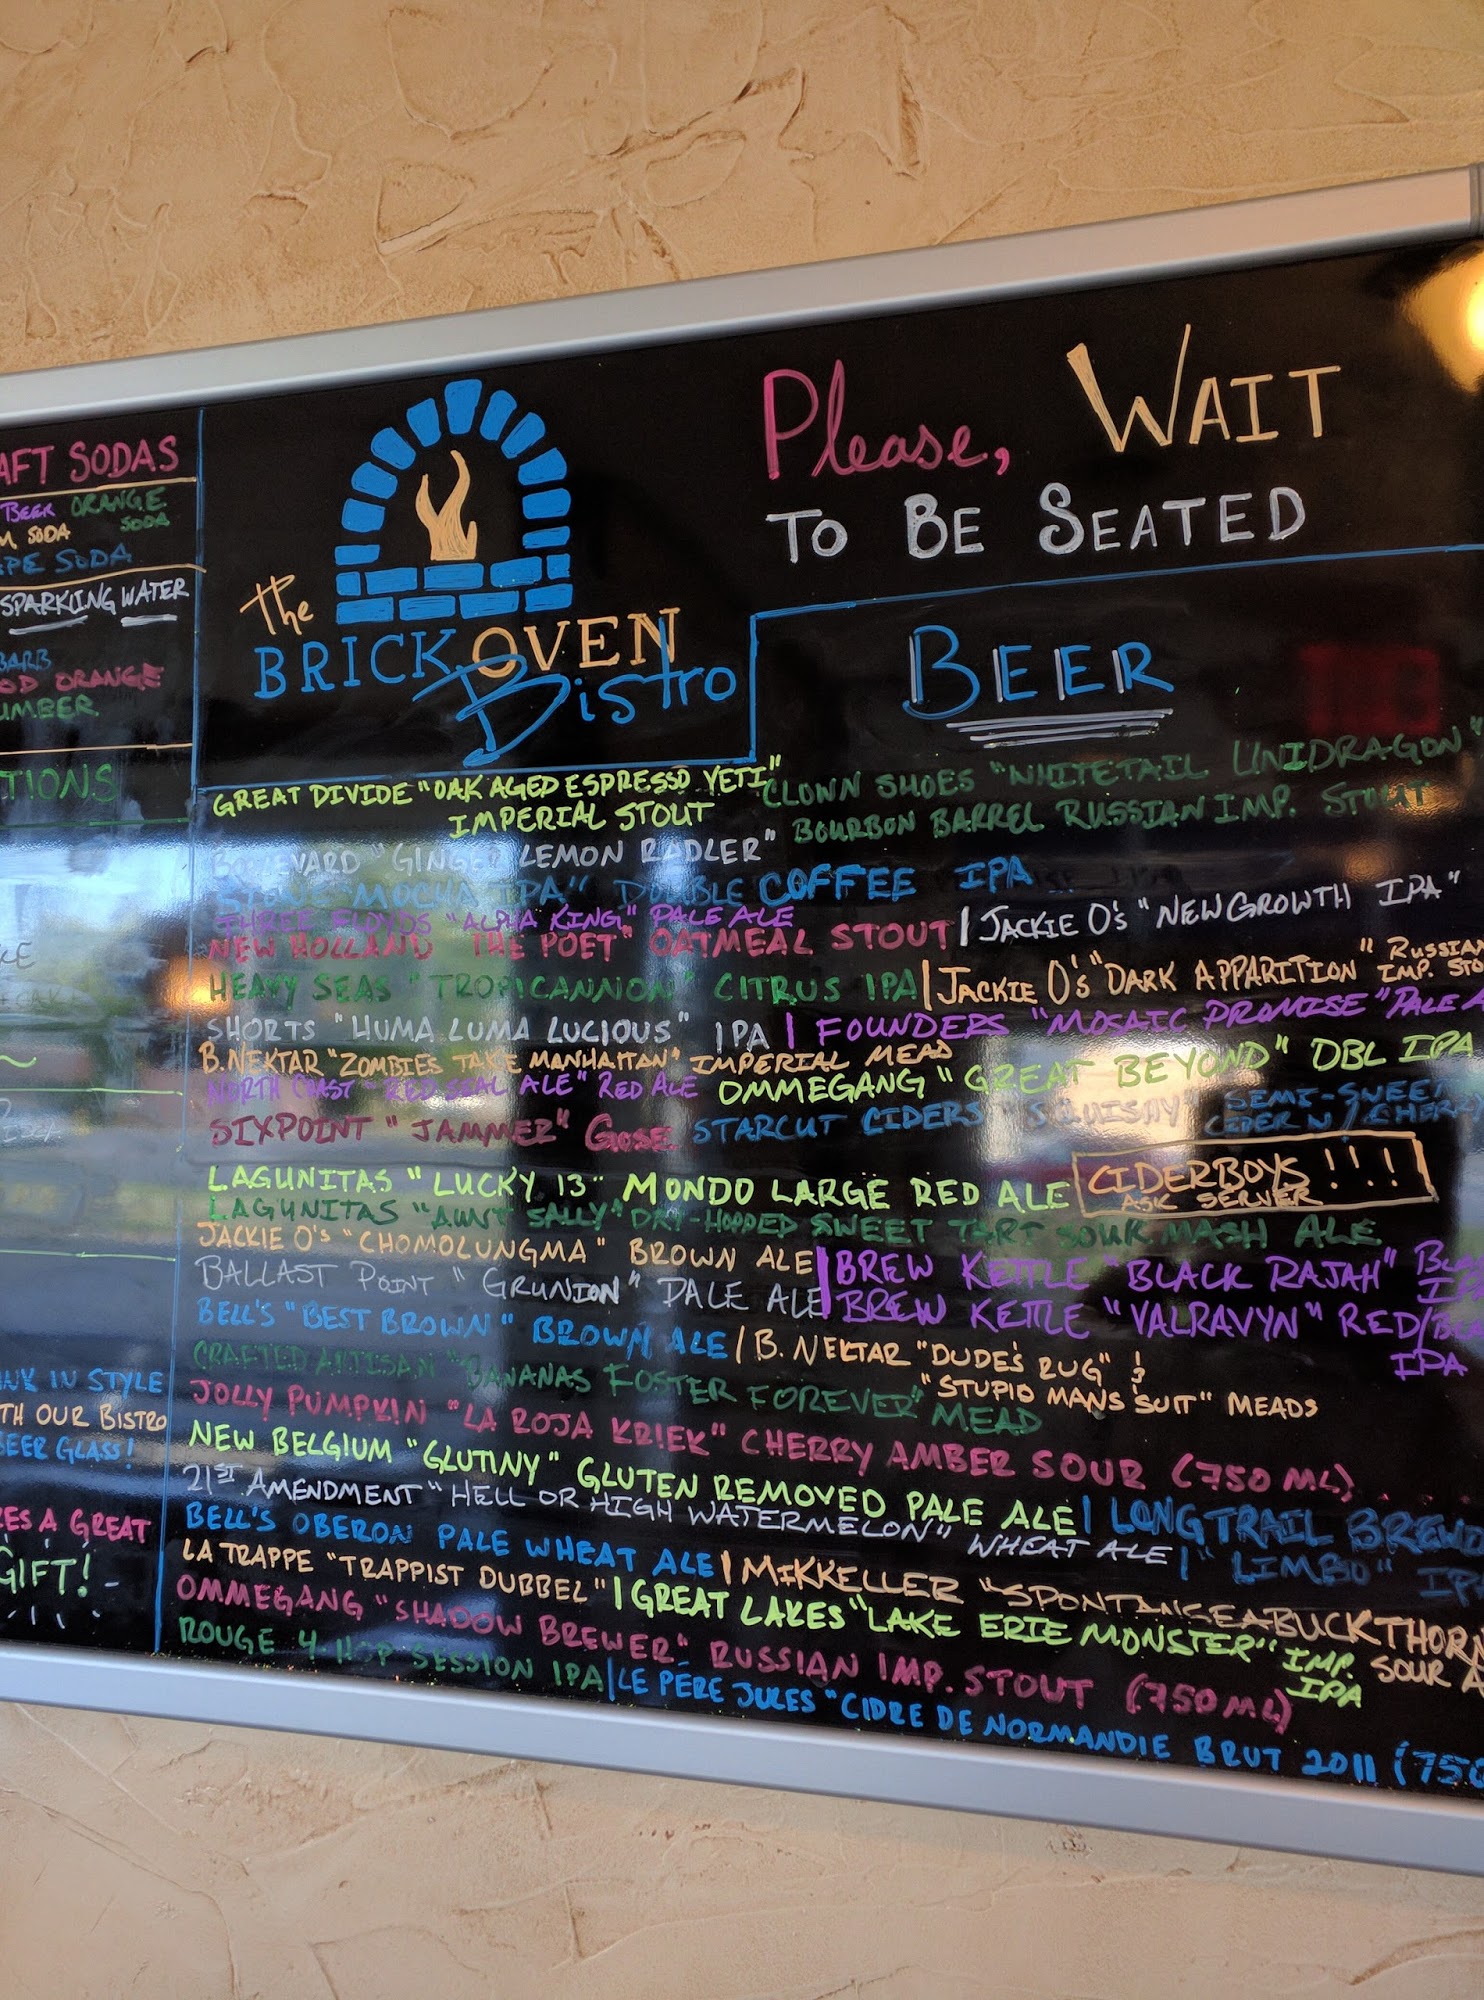 AFT SODAS
BEER ORANGE
SODA
M SODA
PE SODA
SPARKLING WATER
BARB
OD ORANGE
UMBER
TIONS
NK IN STYLE
TH OUR BISTRO
BEER GLASS!
ES A GREAT
GIFT!
The
BRICK OVEN
Bistro
Please, WAIT
TO BE SEATED
BEER
GREAT DIVIDE "OAK AGED ESPRESSO YETI"
IMPERIAL STOUT
CLOWN SHOES "WHITETAIL UNIDRAGON"
BOURBON BARREL RUSSIAN IMP. STOUT
BOULEVARD "GINGER LEMON RADLER"
STONE "MOCHA IPA" DOUBLE COFFEE IPA
THREE FLOYDS "ALPHA KING" PALE ALE
NEW HOLLAND "THE POET" OATMEAL STOUT | JACKIE O's "NEW GROWTH IPA"
HEAVY SEAS "TROPICANNON" CITRUS IPA | JACKIE O's "DARK APPARITION" RUSSIAN
IMP. STO
SHORTS "HUMA LUMA LUCIOUS" IPA | FOUNDERS "MOSAIC PROMISE" PALE A
B. NEKTAR "ZOMBIES TAKE MANHATTAN" IMPERIAL MEAD
NORTH COAST "RED SEAL ALE" RED ALE OMMEGANG "GREAT BEYOND" DBL IPA
SIXPOINT "JAMMER" GOSE STARCUT CIDERS "SQUISHY" SEMI-SWEET
CIDER W/ CHERR
LAGUNITAS "LUCKY 13" MONDO LARGE RED ALE CIDERBOYS !!!
ASK SERVER
LAGUNITAS "AUNT SALLY" DRY-HOPPED SWEET TART SOUR MASH ALE
JACKIE O's "CHOMOLUNGMA" BROWN ALE | BREW KETTLE "BLACK RAJAH" BLA
BALLAST POINT "GRUNION" PALE ALE | BREW KETTLE "VALRAVYN" RED/
IPA
BELL'S "BEST BROWN" BROWN ALE / B. NEKTAR "DUDE'S RUG" &
"STUPID MANS SUIT" MEADS
CRAFTED ARTISAN "BANANAS FOSTER FOREVER" MEAD
JOLLY PUMPKIN "LA ROJA KRIEK" CHERRY AMBER SOUR (750 ML)
NEW BELGIUM "GLUTINY" GLUTEN REMOVED PALE ALE | LONGTRAIL BREW
21ST AMENDMENT "HELL OR HIGH WATERMELON" WHEAT ALE | "LIMBO" IP
BELL'S OBERON PALE WHEAT ALE | MIKKELLER "SPONTANSEABUCKTHORN
SOUR A
LA TRAPPE "TRAPPIST DUBBEL" | GREAT LAKES "LAKE ERIE MONSTER" IMP.
IPA
OMMEGANG "SHADOW BREWER" RUSSIAN IMP. STOUT (750 ML)
ROUGE 4-HOP SESSION IPA | LE PÈRE JULES "CIDRE DE NORMANDIE BRUT 2011 (750